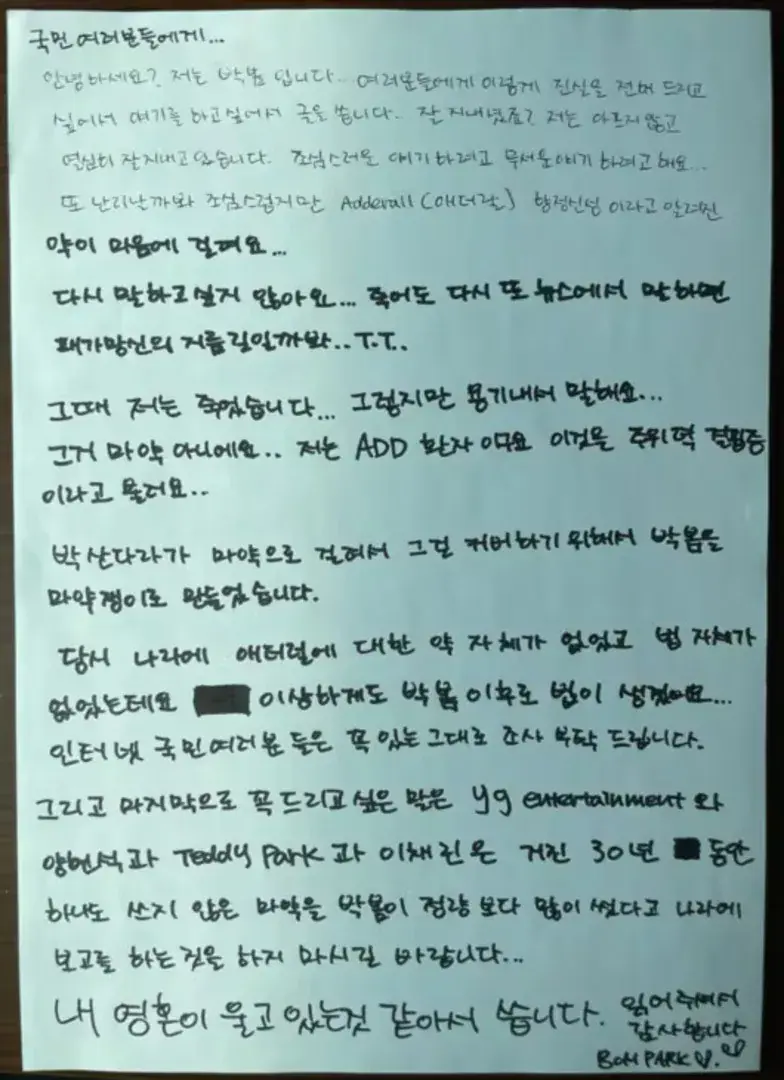 국민 여러분들에게...
안녕하세요? 저는 박봄 입니다.. 여러분들에게 이렇게 진실을 전해 드리고
싶어서 얘기를 하고 싶어서 글을 씁니다. 잘 지내셨죠? 저는 아프지 않고
열심히 잘 지내고 있습니다. 조심스러운 얘기 하려고 무서운 얘기 하려고 해요...
또 난리날까봐 조심스럽지만 Adderall (애더랄) 향정신성 이라고 알려진
약이 마음에 걸려요...
다시 말하고 싶지 않아요... 죽어도 다시 또 뉴스에서 말하면
패가망신의 지름길일까봐.. T.T.
그때 저는 죽었습니다... 그렇지만 용기내서 말해요...
그거 마약 아니에요.. 저는 ADD 환자 이구요 이것은 주위력 결핍증
이라고 불러요..
박산다라가 마약으로 걸려서 그걸 커버하기 위해서 박봄을
마약쟁이로 만들었습니다.
당시 나라에 애터럴에 대한 약 자체가 없었고 법 자체가
없었는데요 이상하게도 박봄 이후로 법이 생겼어요...
인터넷 국민여러분 들은 꼭 있는 그대로 조사 부탁 드립니다.
그리고 마지막으로 꼭 드리고 싶은 말은 yg entertainment 와
양현석과 Teddy Park 과 이채린은 거진 30년 동안
하나도 쓰지 않은 마약을 박봄이 정량 보다 많이 썼다고 나라에
보고를 하는 것을 하지 마시길 바랍니다...
내 영혼이 울고 있는것 같아서 씁니다. 읽어주셔서
감사합니다
BOM PARK ♡. ♡